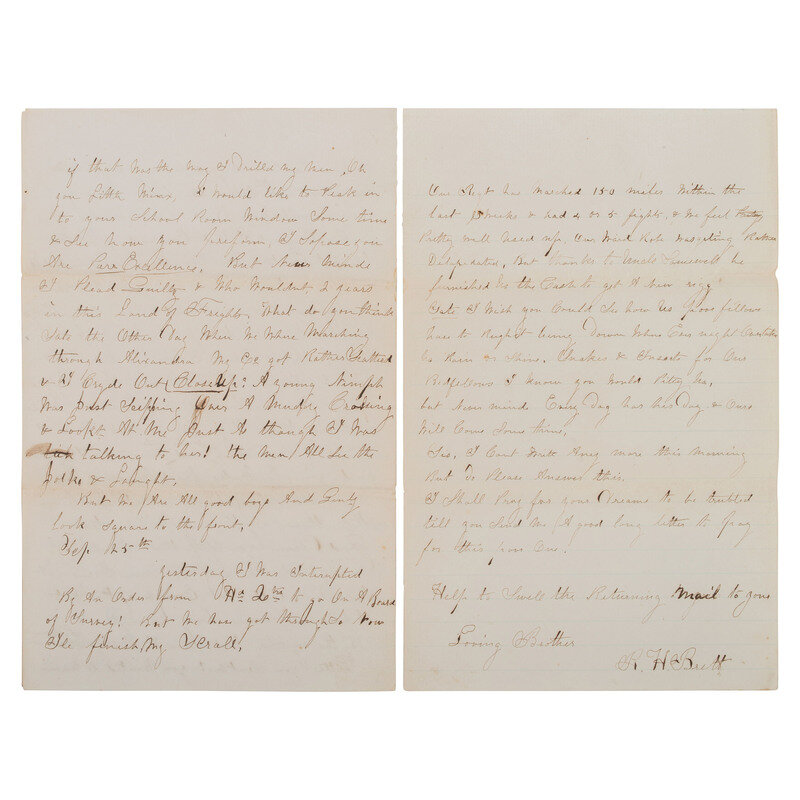 if that was the way I drilled my men, Oh
you Little Minx, I would like to Peak in
to your School Room Window Some time
& See how you preform, I Sopose you
Are Parr Excellence, But Never Minde
I Plead Guilty & Who Wouldnt 2 years
in this Land of Freight, What do you think
Sate the Other Day When We Where Marching
through Alixandra My Co got Rather
& I Cryde Out (Close Up? A young Nimph
Was Just Scipping A Mudy Crosing
& Lookt At Me Just As though I Was
talking to her! the Men All See the
Joke & Laught.
But We Are All good boys And Only
look Square to the front,
Sep 25th
yesterday I Was Interupted
By An Order from Hd 2rs to go On A Board
of Survey! But We have got through So Now
Ile finish My Scrall,
Our Regt has Marched 150 miles Within the
last weeks & had 4 or 5 fights, & We feel
Pretty Well Used Up, Our Ward Robe Was geting Rather
Delapidated, But thanks to Uncle he
furnished Us the Cash to get A New rigg
Sate I Wish you Could See how Us poor fellows
have to Night being Down When Ever night
to Rain or Shine, Snakes & Insect for Our
Bedfellows I know you Would Pitty Us,
but Never mind Every Day has his Day & Ours
Will Come Some time,
I Cant Write Any more this Morning
But Do Please Answer this.
I Shall Pray for your Dreams to be trubled
till you Send Me A good long letter to Pay
for this poor One.
Help to Swell the Returning Mail to your
Loving Brother
H Brett